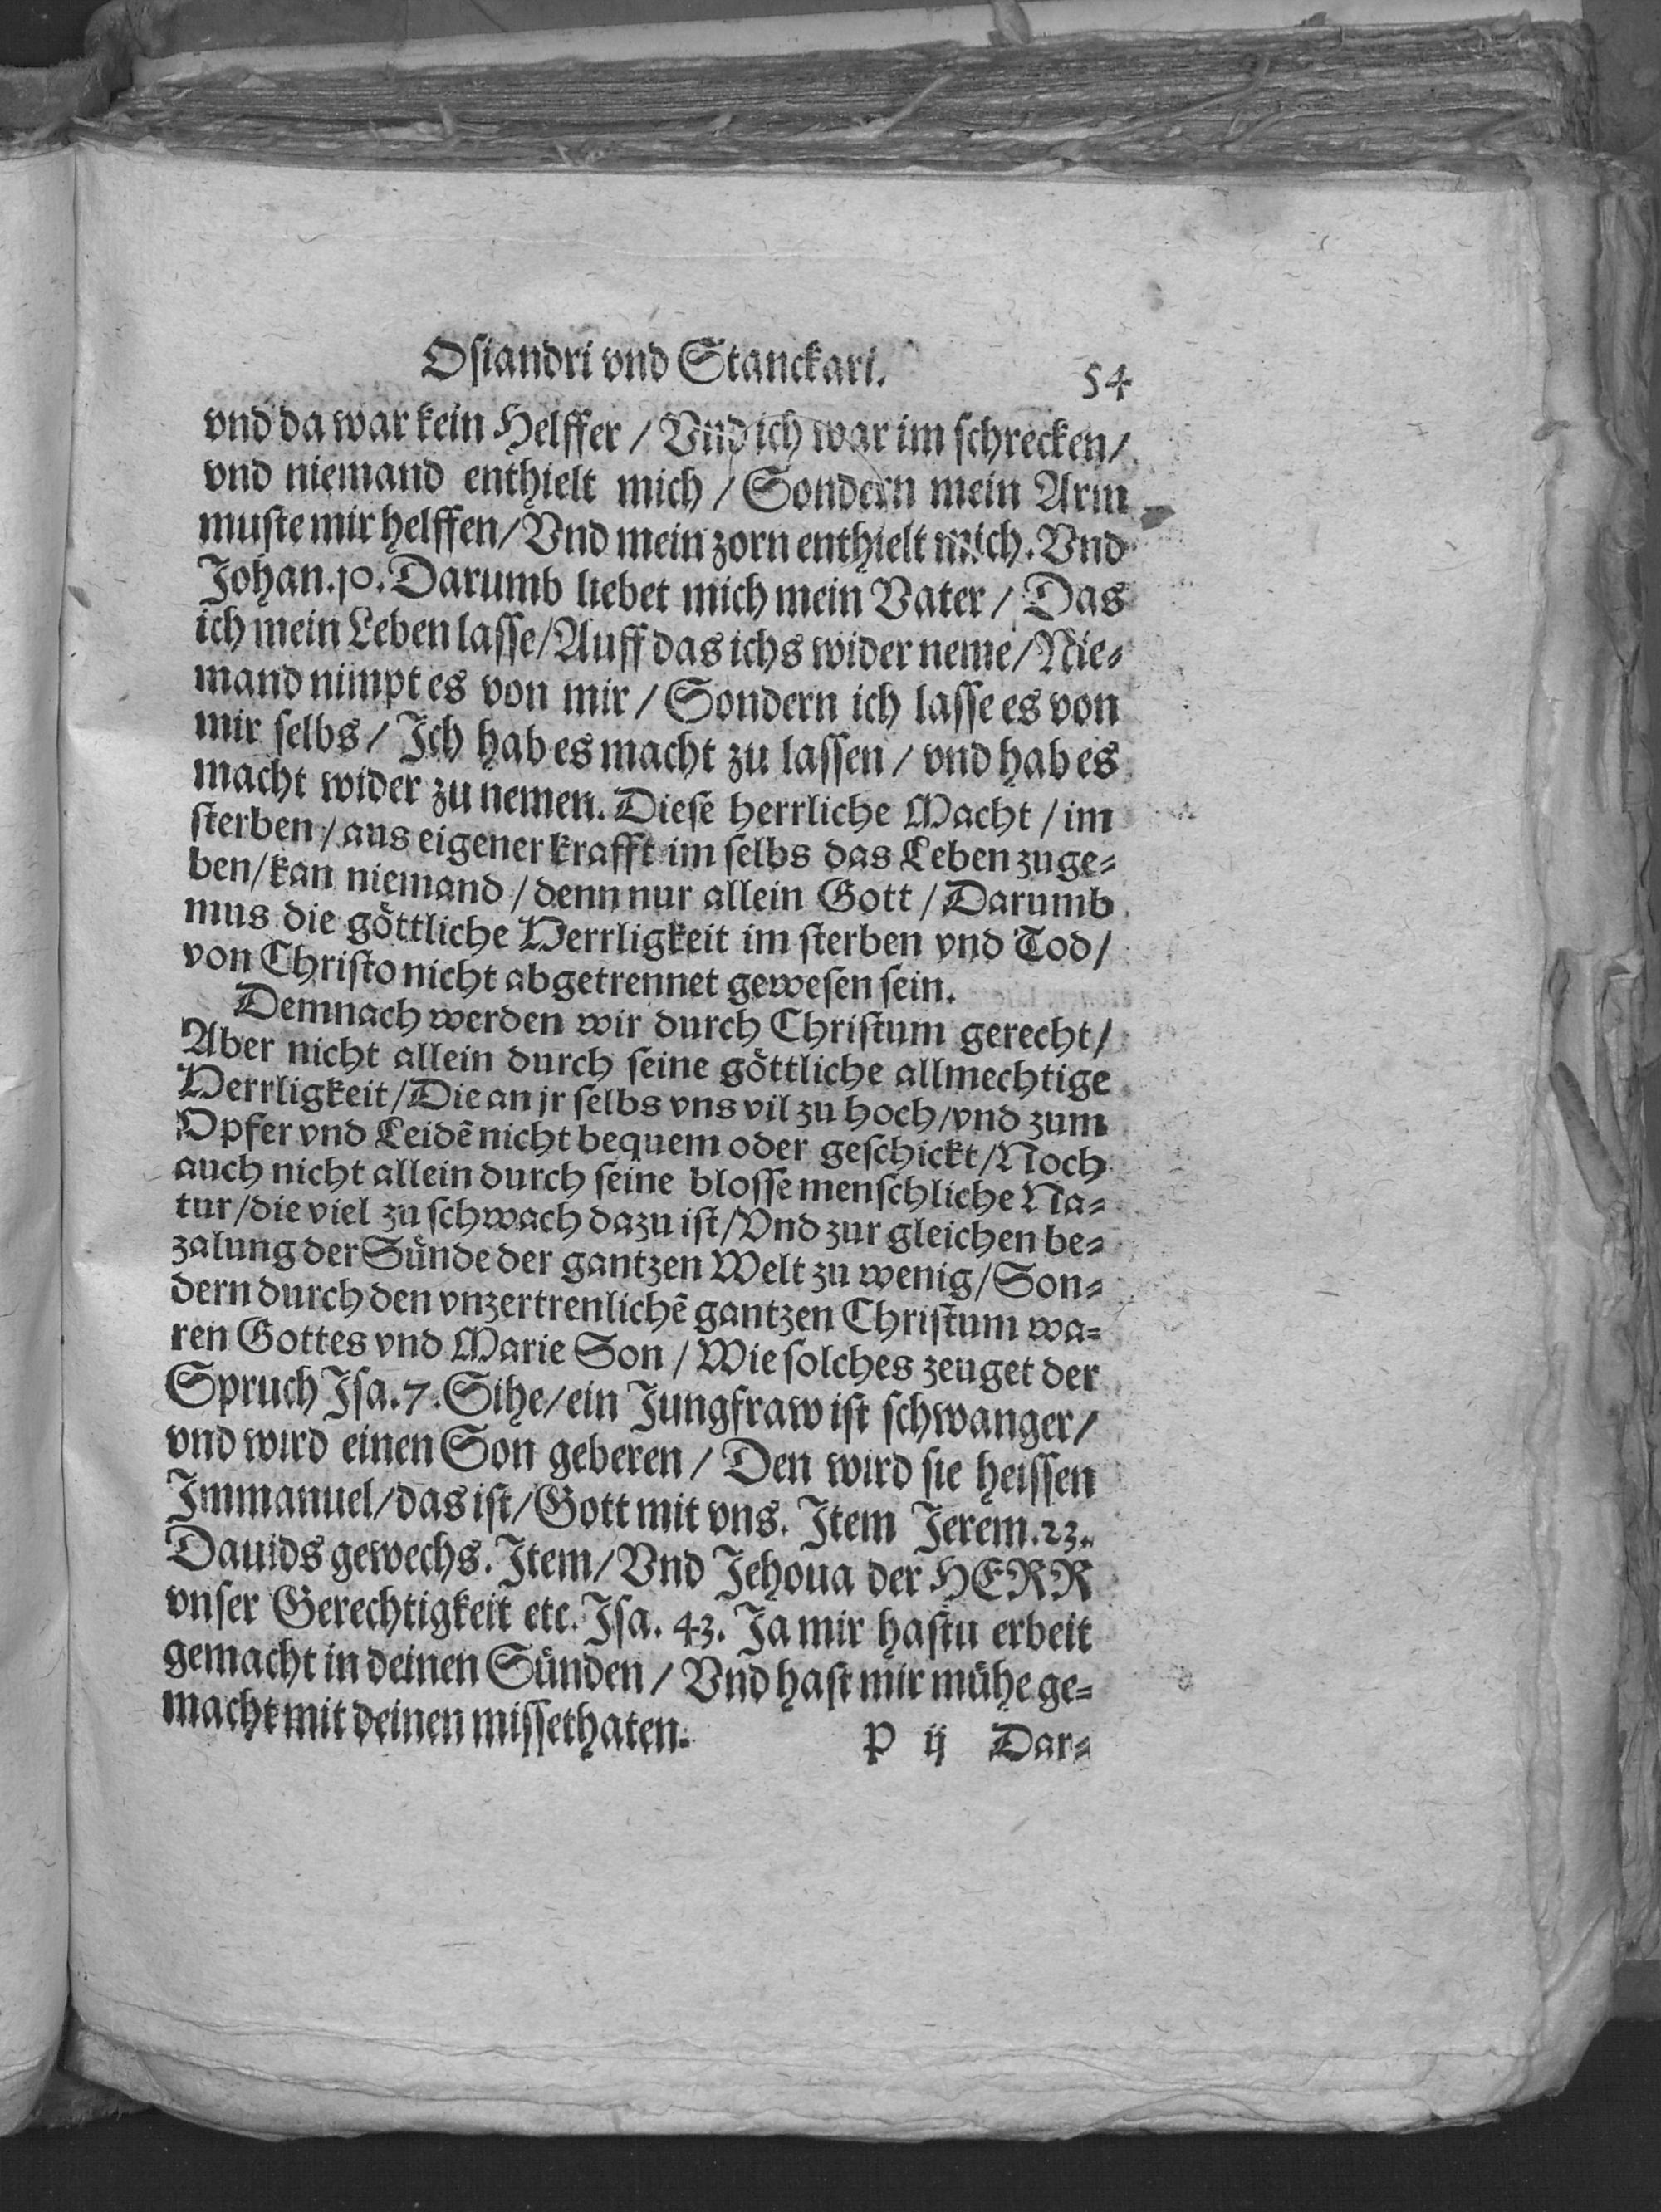 Osiandri vnd Stanckari. 54
vnd da war kein Helffer / Vnd ich war im schrecken /
vnd niemand enthielt mich / Sondern mein Arm
muste mir helffen / Vnd mein zorn enthielt mich. Vnd
Johan. 10. Darumb liebet mich mein Vater / Das
ich mein Leben lasse / Auff das ichs wider neme / Nie=
mand nimpt es von mir / Sondern ich lasse es von
mir selbs / Ich hab es macht zu lassen / vnd hab es
macht wider zu nemen. Diese herrliche Macht / im
sterben / aus eigener krafft im selbs das Leben zuge=
ben / kan niemand / denn nur allein Gott / Darumb
mus die göttliche Herrligkeit im sterben vnd Tod /
von Christo nicht abgetrennet gewesen sein.
Demnach werden wir durch Christum gerecht /
Aber nicht allein durch seine göttliche allmechtige
Herrligkeit / Die an jr selbs vns vil zu hoch / vnd zum
Opfer vnd Leidē nicht bequem oder geschickt / Noch
auch nicht allein durch seine blosse menschliche Na=
tur / die viel zu schwach dazu ist / Vnd zur gleichen be=
zalung der Sünde der gantzen Welt zu wenig / Son=
dern durch den vnzertrenlichē gantzen Christum wa=
ren Gottes vnd Marie Son / Wie solches zeuget der
Spruch Isa. 7. Sihe / ein Jungfraw ist schwanger /
vnd wird einen Son geberen / Den wird sie heissen
Immanuel / das ist / Gott mit vns. Item Jerem. 23.
Dauids gewechs. Item / Vnd Jehoua der HERR
vnser Gerechtigkeit etc. Isa. 43. Ja mir hastu erbeit
gemacht in deinen Sünden / Vnd hast mir mühe ge=
macht mit deinen missethaten.
P ij Dar=